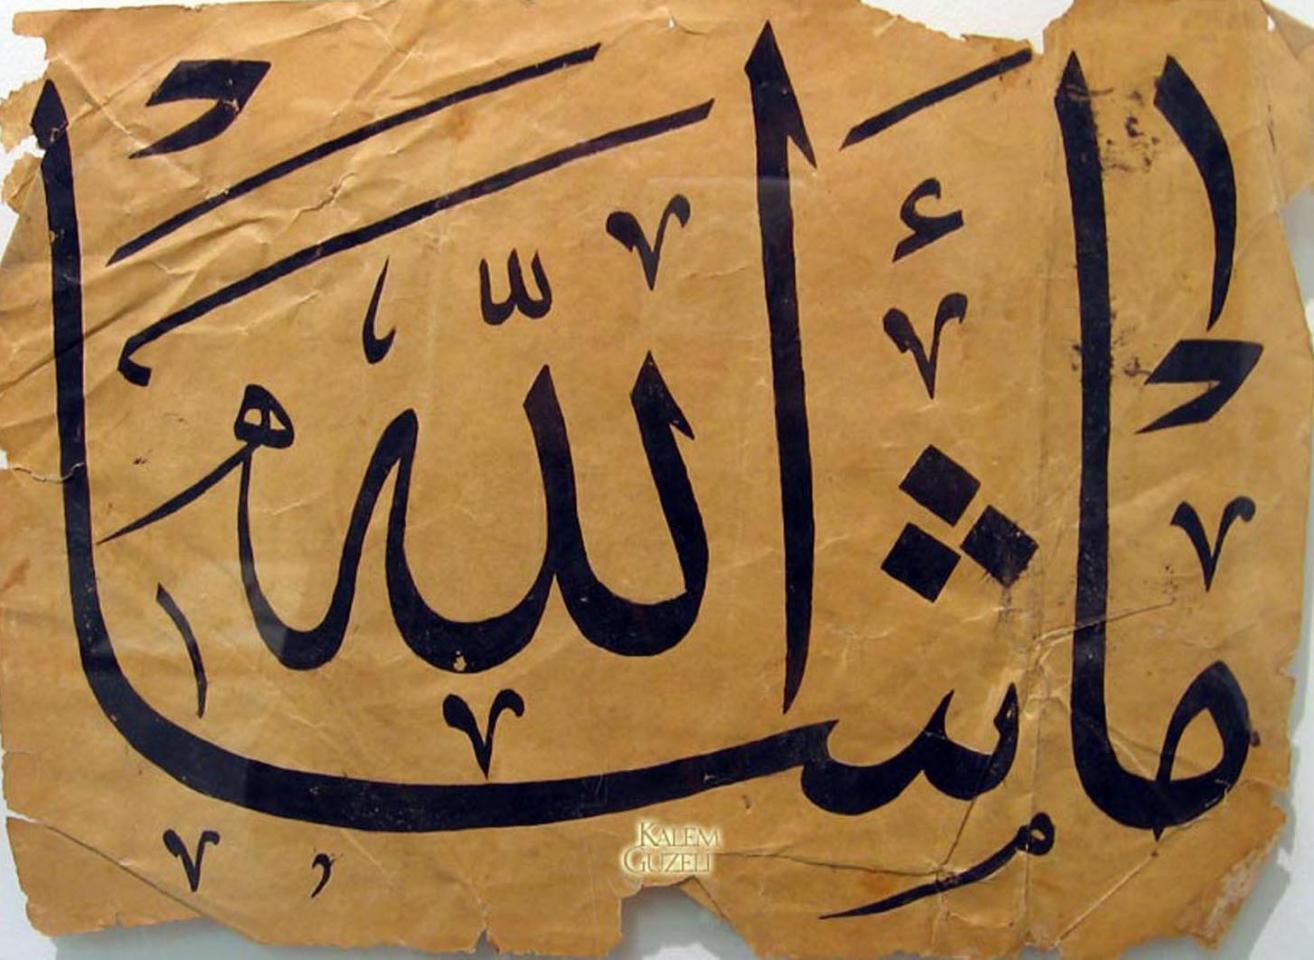 ما شاء الله
KALEM
GUZELI